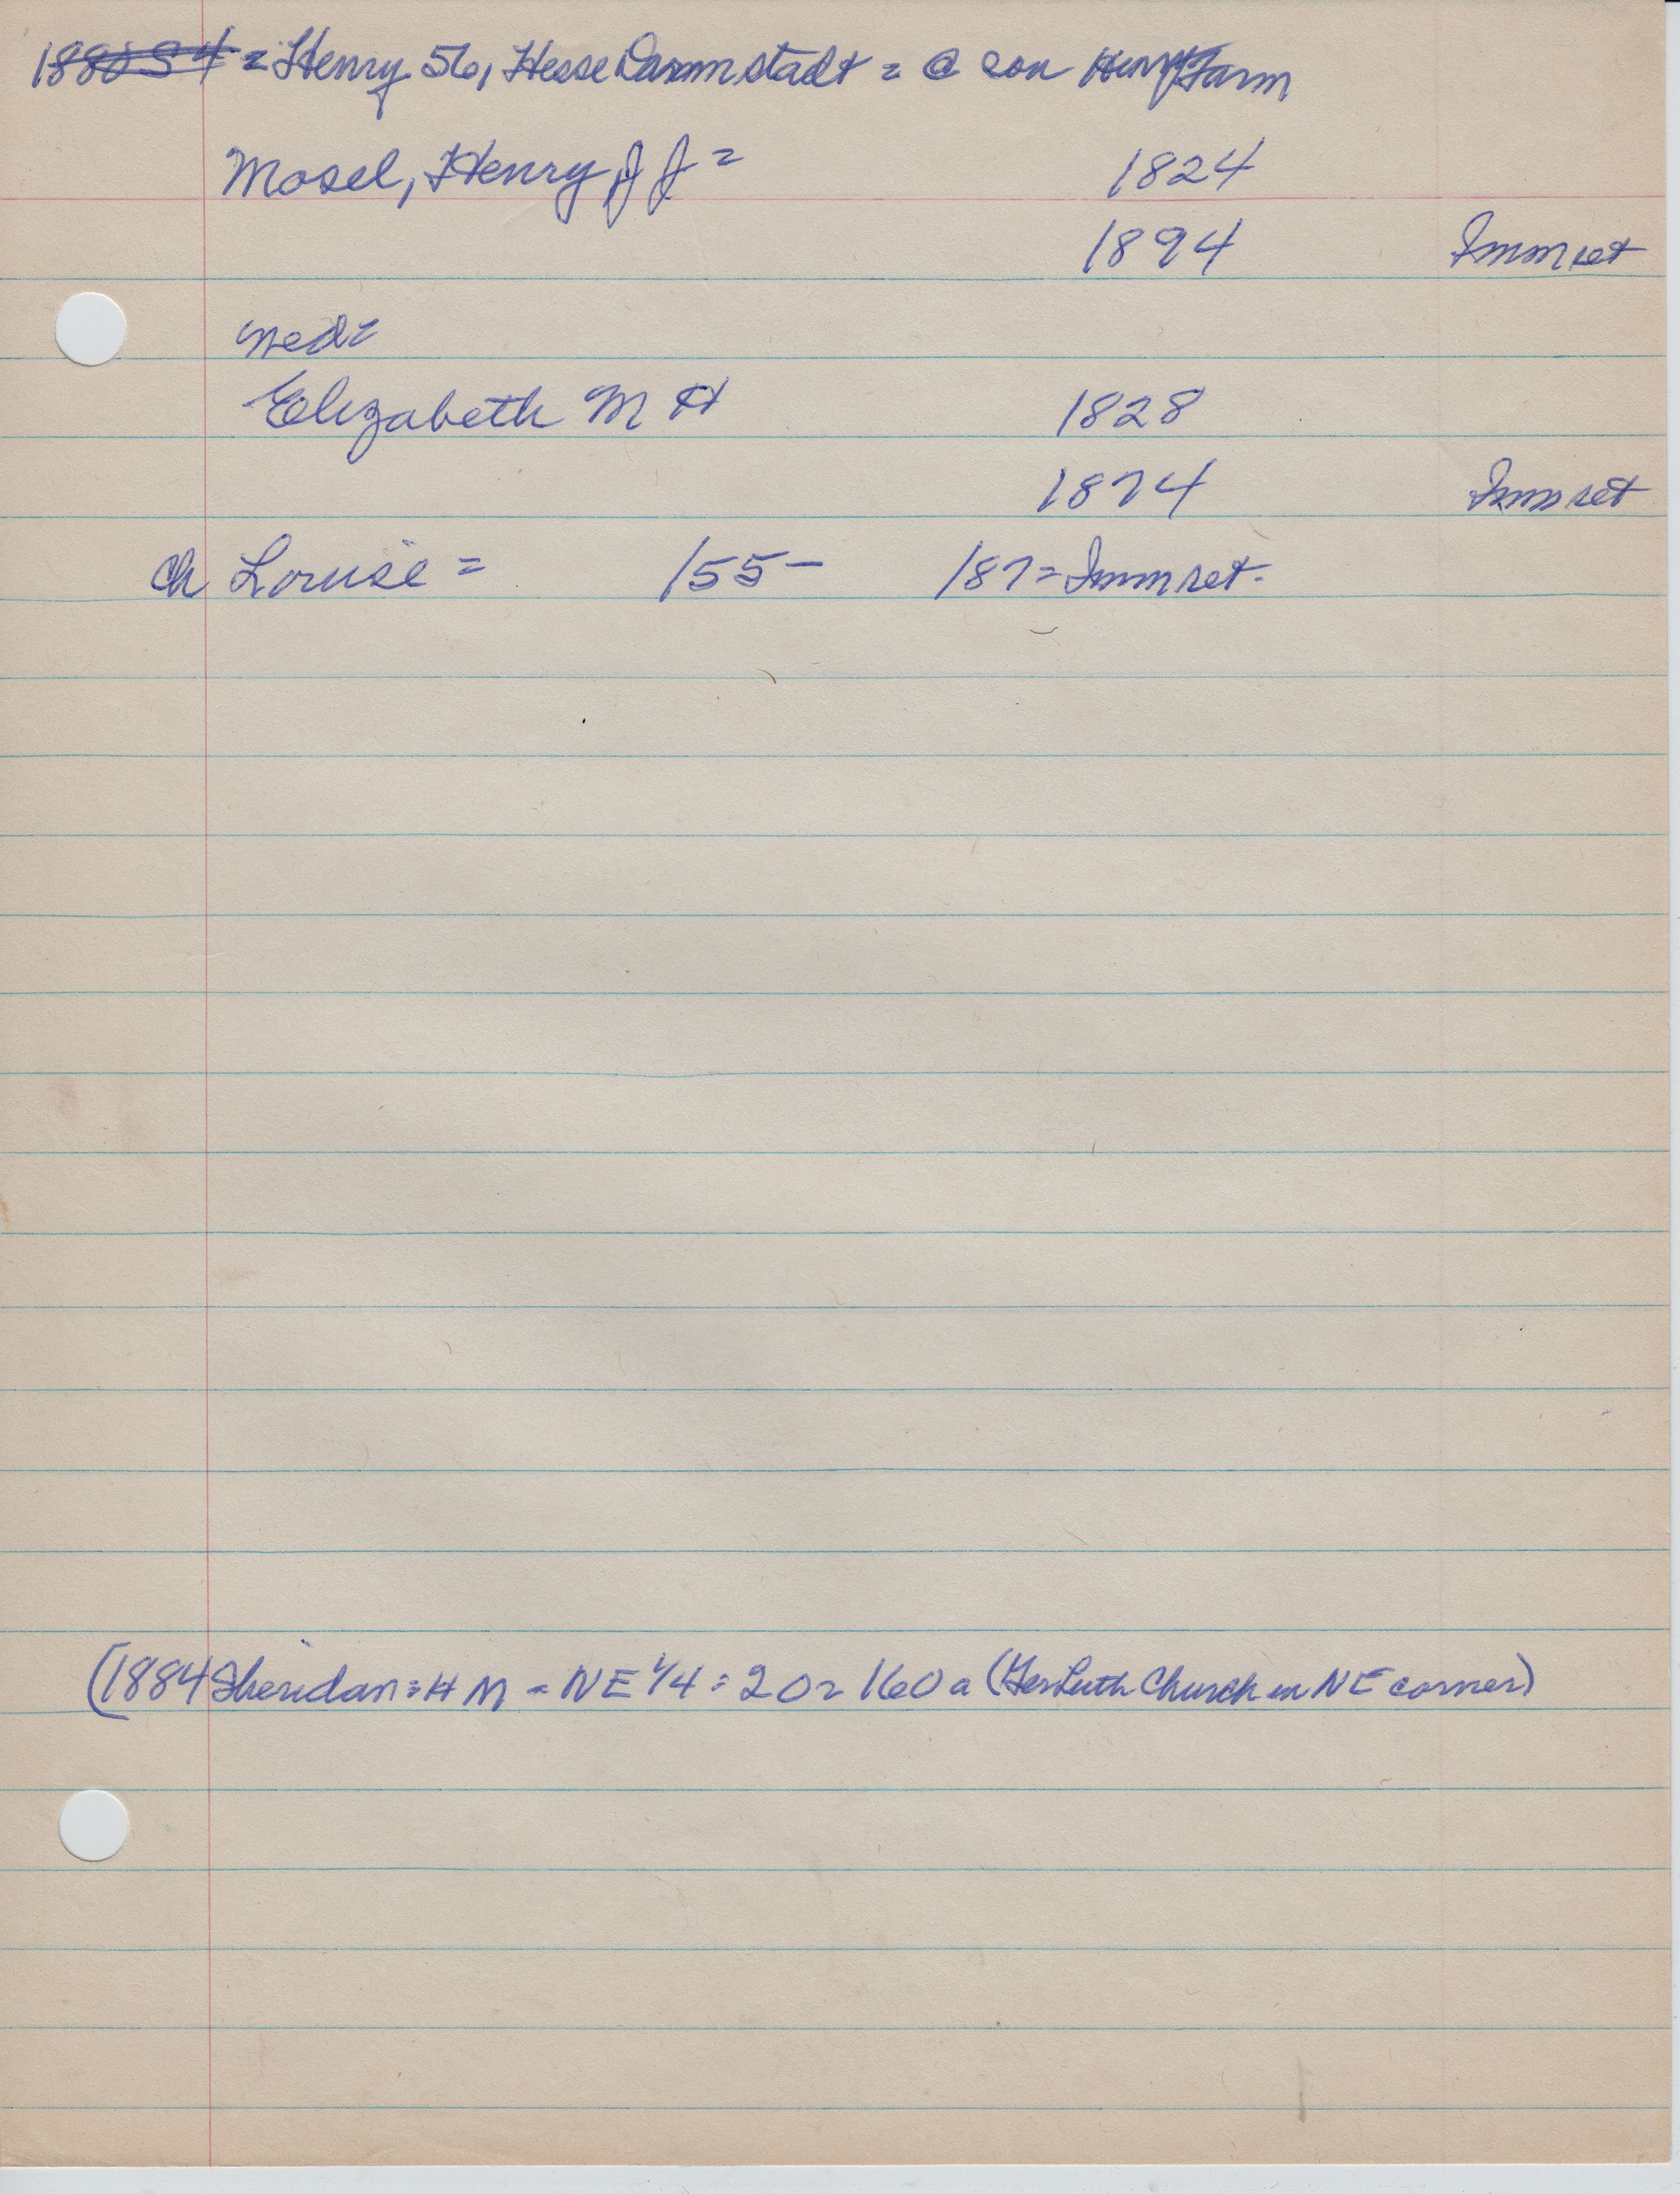 1880 S 4 = Henry 56, Hesse Darmstadt = @ son Henry Farm
Mosel, Henry, J J = 1824
1894 Imm ret
med =
Elizabeth M H 1828
1874 Imm ret
ch Louise = 155 - 187 = Imm ret -
(1884 Sheridan = H M - NE 1/4 = 20 = 160 a (Ger Luth Church in NE corner)